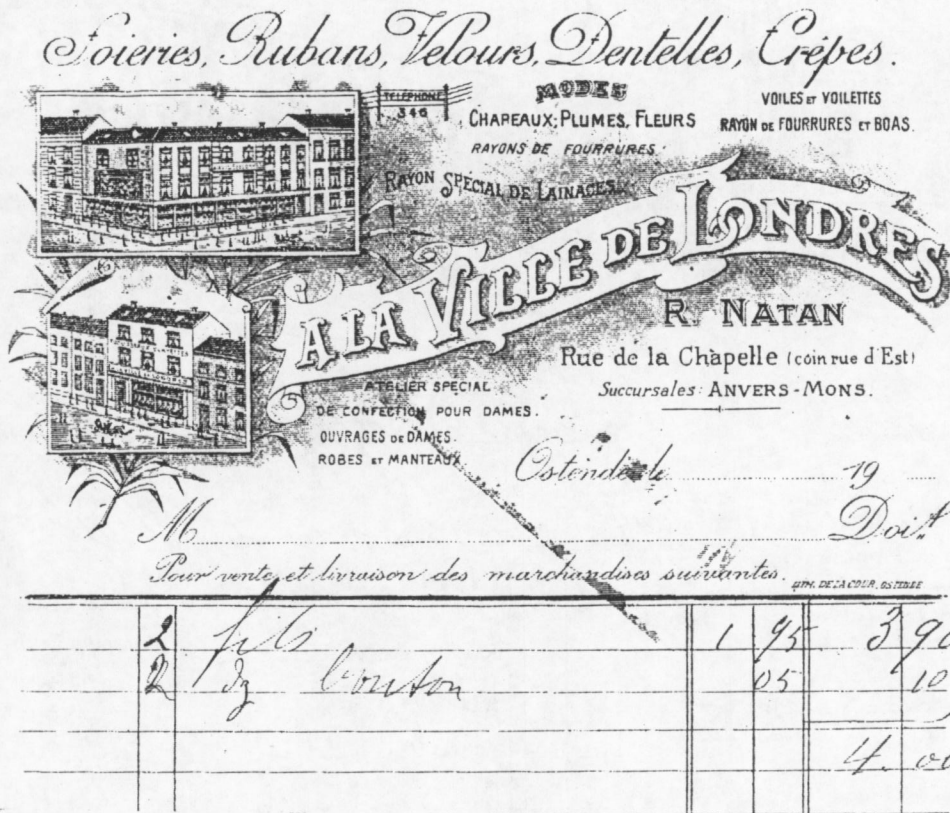 Soieries, Rubans, Velours, Dentelles, Crêpes.
TÉLÉPHONE
346
MODES
CHAPEAUX; PLUMES, FLEURS
RAYONS DE FOURRURES.
VOILES ET VOILETTES
RAYON DE FOURRURES ET BOAS.
RAYON SPÉCIAL DE LAINAGES.
A LA VILLE DE LONDRES
R. NATAN
Rue de la Chapelle (coin rue d'Est)
Succursales: ANVERS-MONS.
ATELIER SPÉCIAL
DE CONFECTION POUR DAMES.
OUVRAGES DE DAMES.
ROBES ET MANTEAUX
Ostende le 19
M Doit
Pour vente et livraison des marchandises suivantes.
LITH. DELACOUR, OSTENDE
2 fils 1 95 3 90
2 dz bouton 05 10
4. 00